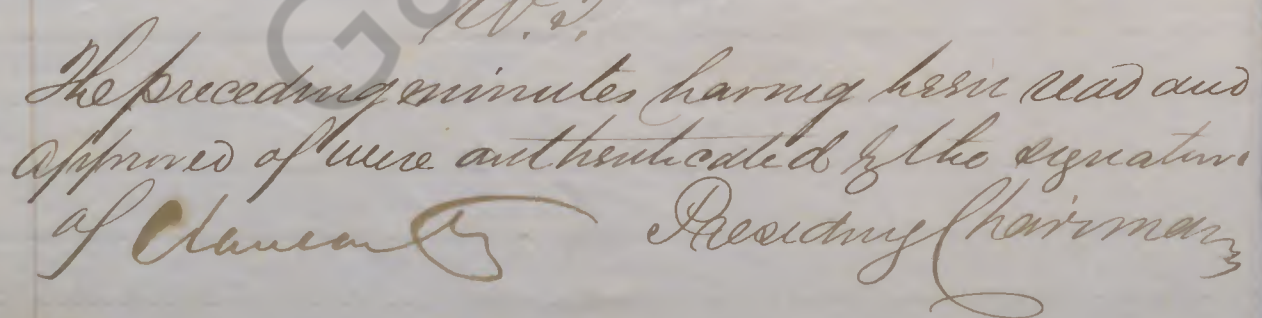 The preceding minutes having been read and
approved of were authenticated by the signature
of Clancarty Presiding Chairman